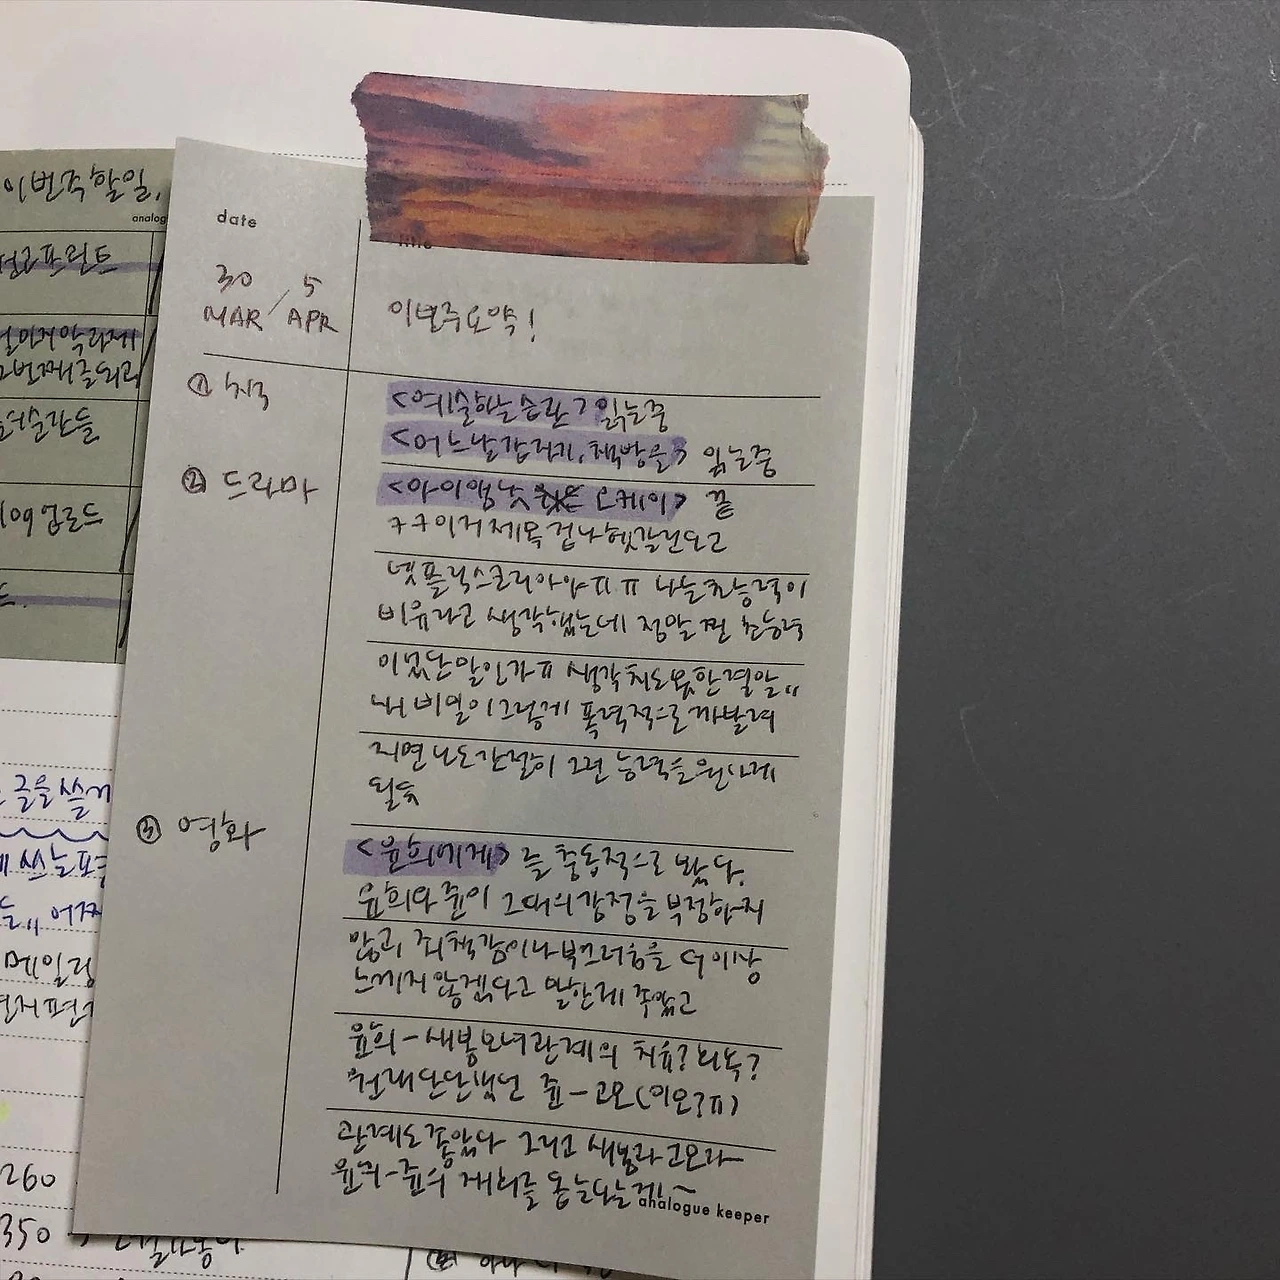 이번주할일,
analog
date
title
30 MAR / 5 APR
이번주요약!
① 책
<예술하는습관> 읽는중
<어느날갑자기, 책방을> 읽는중
② 드라마
<아이앰낫 오케이> 끝
ㅋㅋ이거제목 겁나헷갈린다고
넷플릭스코리아야ㅠㅠ 나는초능력이
비유라고 생각했는데 정말찐 초능력
이었단말인가ㅠ 생각치도못한결말,,
내 비밀이그렇게 폭력적으로까발려
지면나도간절히 그런 능력을원하게
될듯
③ 영화
<윤희에게>를 충동적으로 봤다.
윤희와쥰이 그때의감정을부정하지
않고, 죄책감이나부끄러움을 더이상
느끼지않겠다고 말한게 좋았고
윤희-새봄모녀관계의 치유?회복?
원래단단했던 쥰-고모(이모?ㅠ)
관계도좋았다 그리고 새봄과고모가
윤희-쥰의 재회를 돕는다는거!~
analogue keeper
글을쓸게
쓰는
어쩌
메일링
편지
260
350